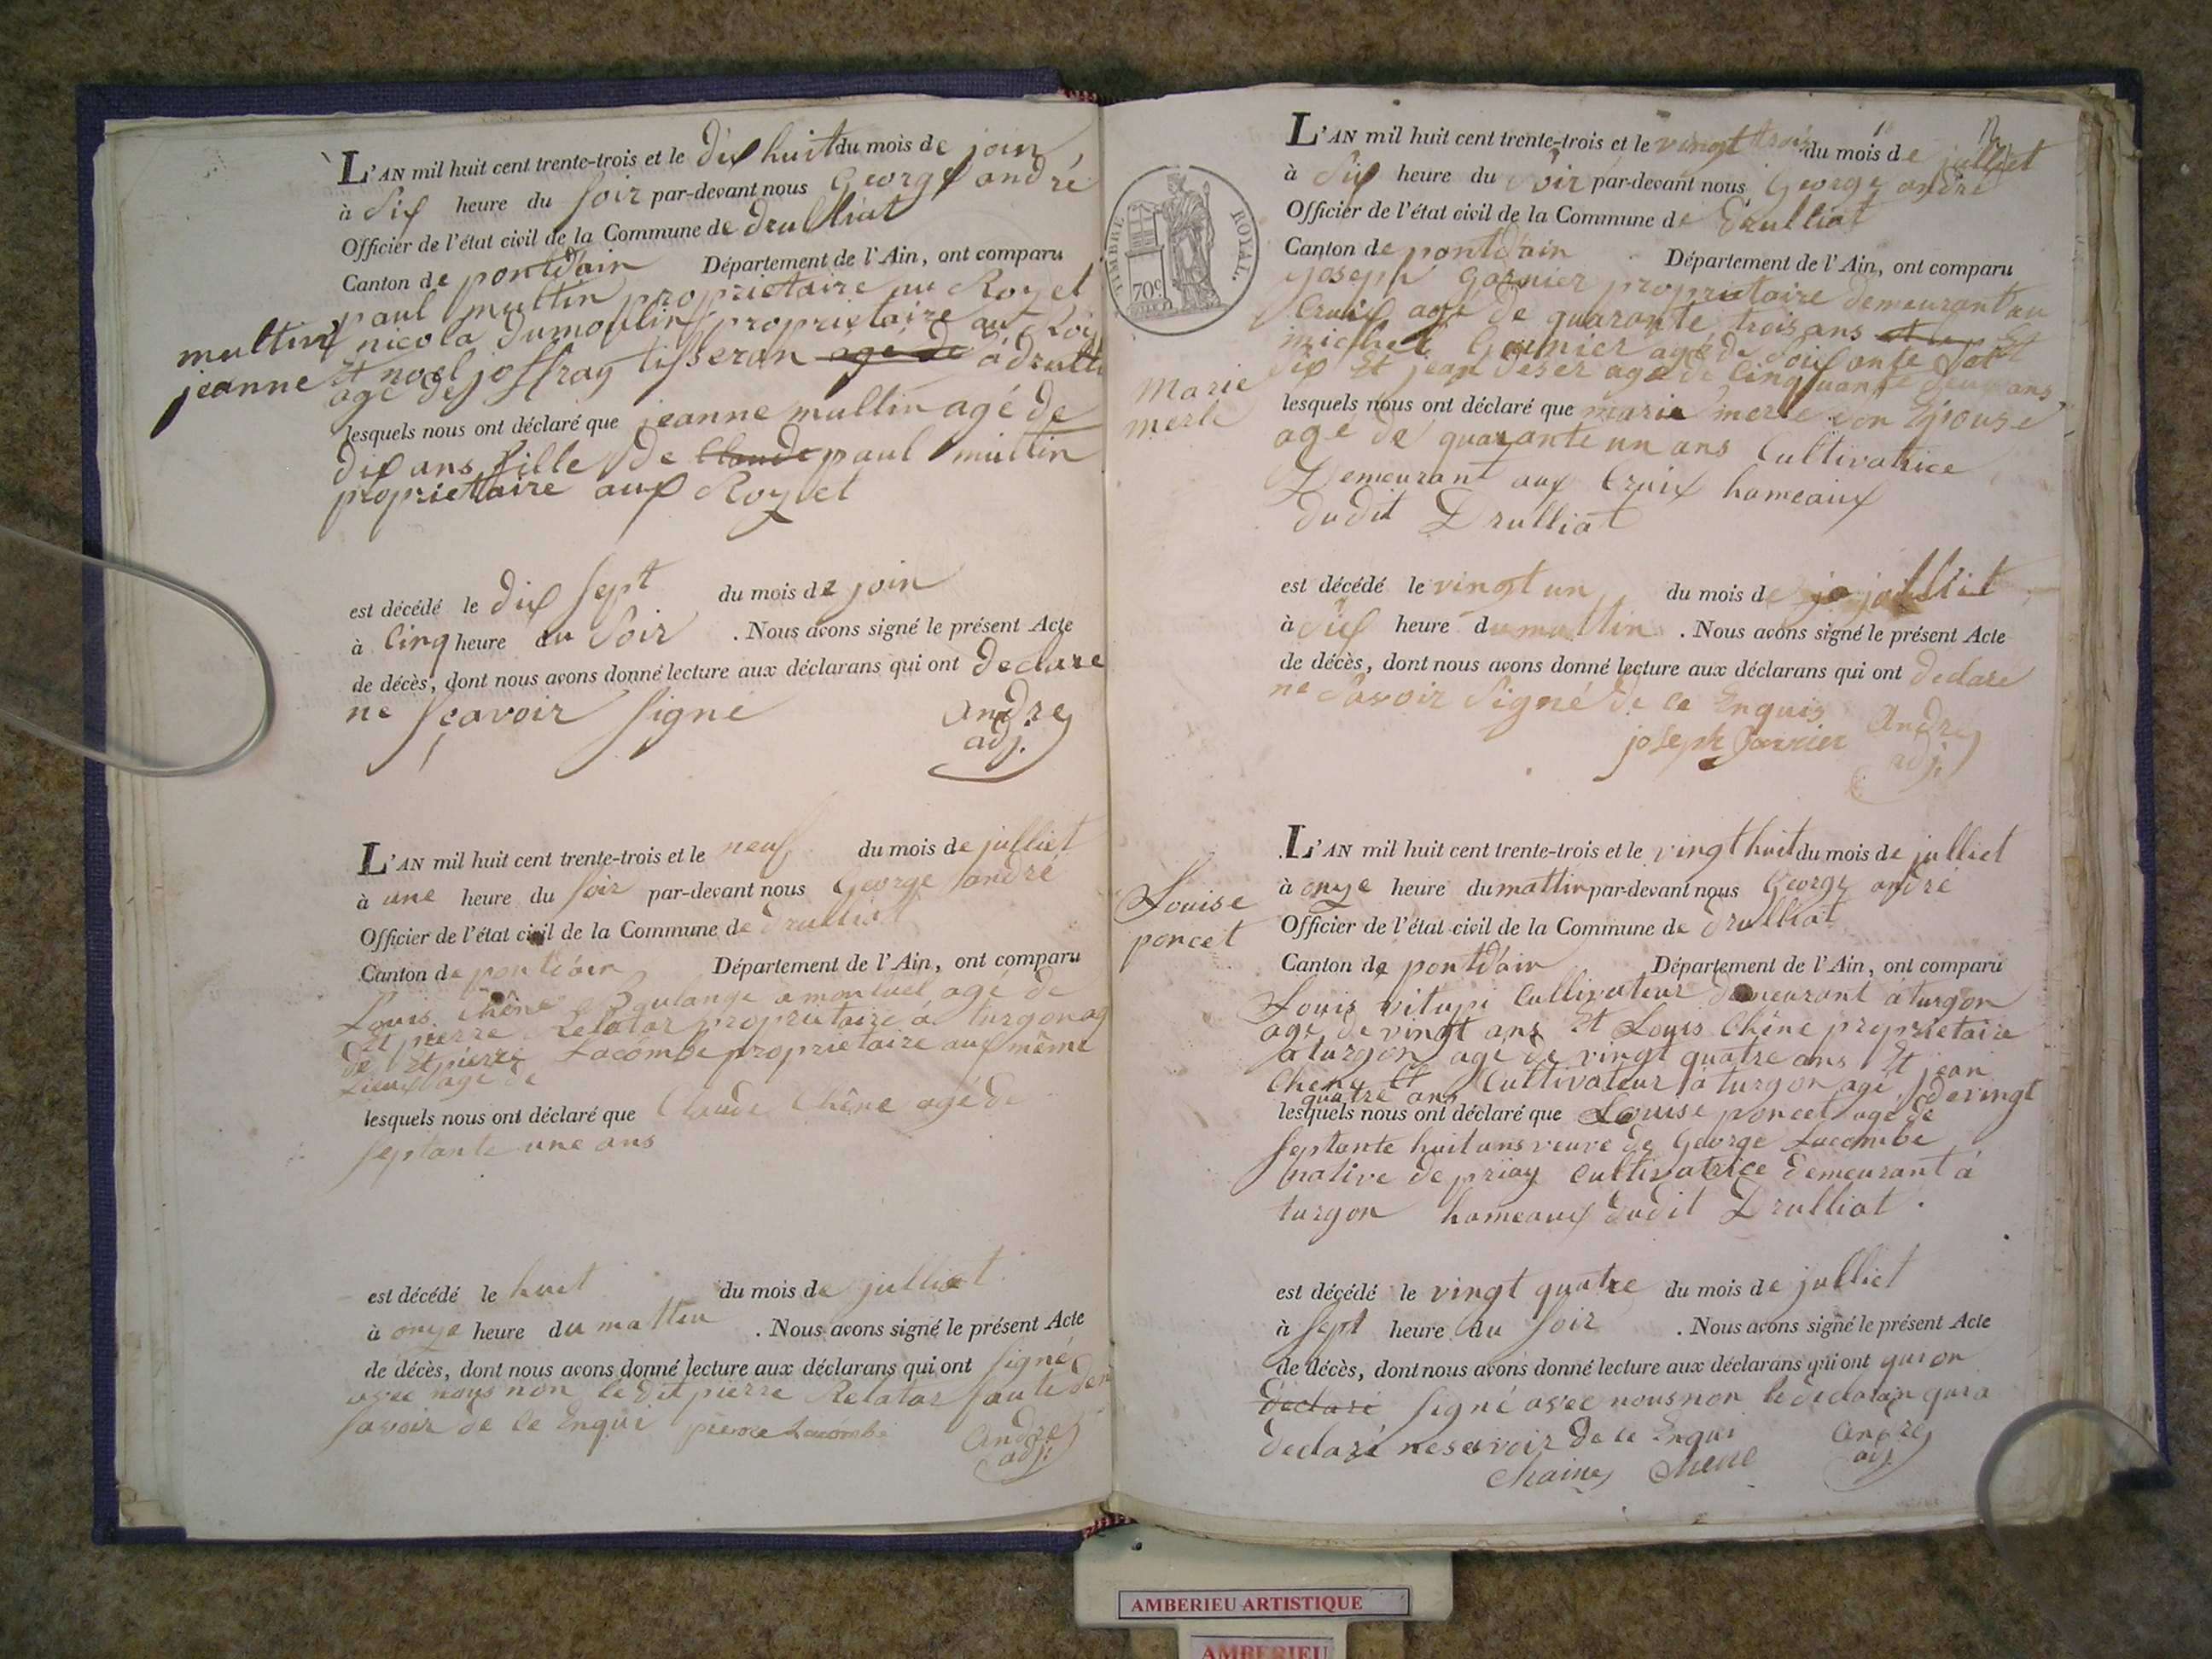 L'AN mil huit cent trente-trois et le dix huit du mois de join
à Six heure du soir par-devant nous George andré
Officier de l'état civil de la Commune de drulliat
Canton de pontdain Département de l'Ain, ont comparu
paul multin proprietaire au Royet
multin nicola dumoulin proprietaire au
jeanne Et noel joffray tisseran age de à
age de
lesquels nous ont déclaré que jeanne mullin agé de
dix ans fille de Claude paul multin
proprietaire aux Royet
est décédé le dix sept du mois de join
à Cinq heure du Soir . Nous avons signé le présent Acte
de décès, dont nous avons donné lecture aux déclarans qui ont declare
ne sçavoir signé andré
adj.
L'AN mil huit cent trente-trois et le neuf du mois de julliet
à une heure du soir par-devant nous George andré
Officier de l'état civil de la Commune de drulliat
Canton de pontdain Département de l'Ain, ont comparu
Louis Chêne Boulange a montuel agé de
Et pierre Relatar proprietaire à turgon ag
de Et pierre Lacombe proprietaire aux même
Lieux agé de
lesquels nous ont déclaré que Claude Chêne agé de
septante une ans
est décédé le huit du mois de julliet
à onze heure du mattin . Nous avons signé le présent Acte
de décès, dont nous avons donné lecture aux déclarans qui ont signé
avec nous non le dit pierre Relatar faute de
savoir de ce Enqui pierre Lacombe andré
adj.
TIMBRE ROYAL.
70c
L'AN mil huit cent trente-trois et le vingt trois du mois de julliet
à Six heure du soir par-devant nous George andré
Officier de l'état civil de la Commune de Drulliat
Canton de pontdain Département de l'Ain, ont comparu
joseph Garnier proprietaire demeurant au
Cruix agé de quarante trois ans Et
michel Garnier agé de soisante
dix Et jean deser agé de Cinquante deux ans
Marie
merle
lesquels nous ont déclaré que marie merle son Epouse
age de quarante un ans Cultivatrice
Demeurant aux Cruix hameaux
dudit Drulliat
est décédé le vingt un du mois de julliet
à Six heure du mattin . Nous avons signé le présent Acte
de décès, dont nous avons donné lecture aux déclarans qui ont declare
ne savoir signé de ce Enquis andré
joseph adj.
L'AN mil huit cent trente-trois et le vingt huit du mois de julliet
à onze heure du mattin par-devant nous George andré
Louise
poncet
Officier de l'état civil de la Commune de drulliat
Canton de pontdain Département de l'Ain, ont comparu
Louis vitupi Cultivateur demeurant à turgon
agé de vingt ans Et Louis Chêne proprietaire
a turgon agé de vingt quatre ans Et jean
Chene Et Cultivateur à turgon agé de vingt
quatre ans
lesquels nous ont déclaré que Louise poncet age de
septante huit ans veuve de George Lacombe
native de priay Cultivatrice demeurant à
turgon hameaux dudit Drulliat .
est décédé le vingt quatre du mois de julliet
à sept heure du soir . Nous avons signé le présent Acte
de décès, dont nous avons donné lecture aux déclarans qui ont qui on
declaré signé avec nous non le declaran qui a
declaré ne savoir de ce Enqui andré
Chaine Chene adj.
AMBERIEU ARTISTIQUE
AMBERIEU